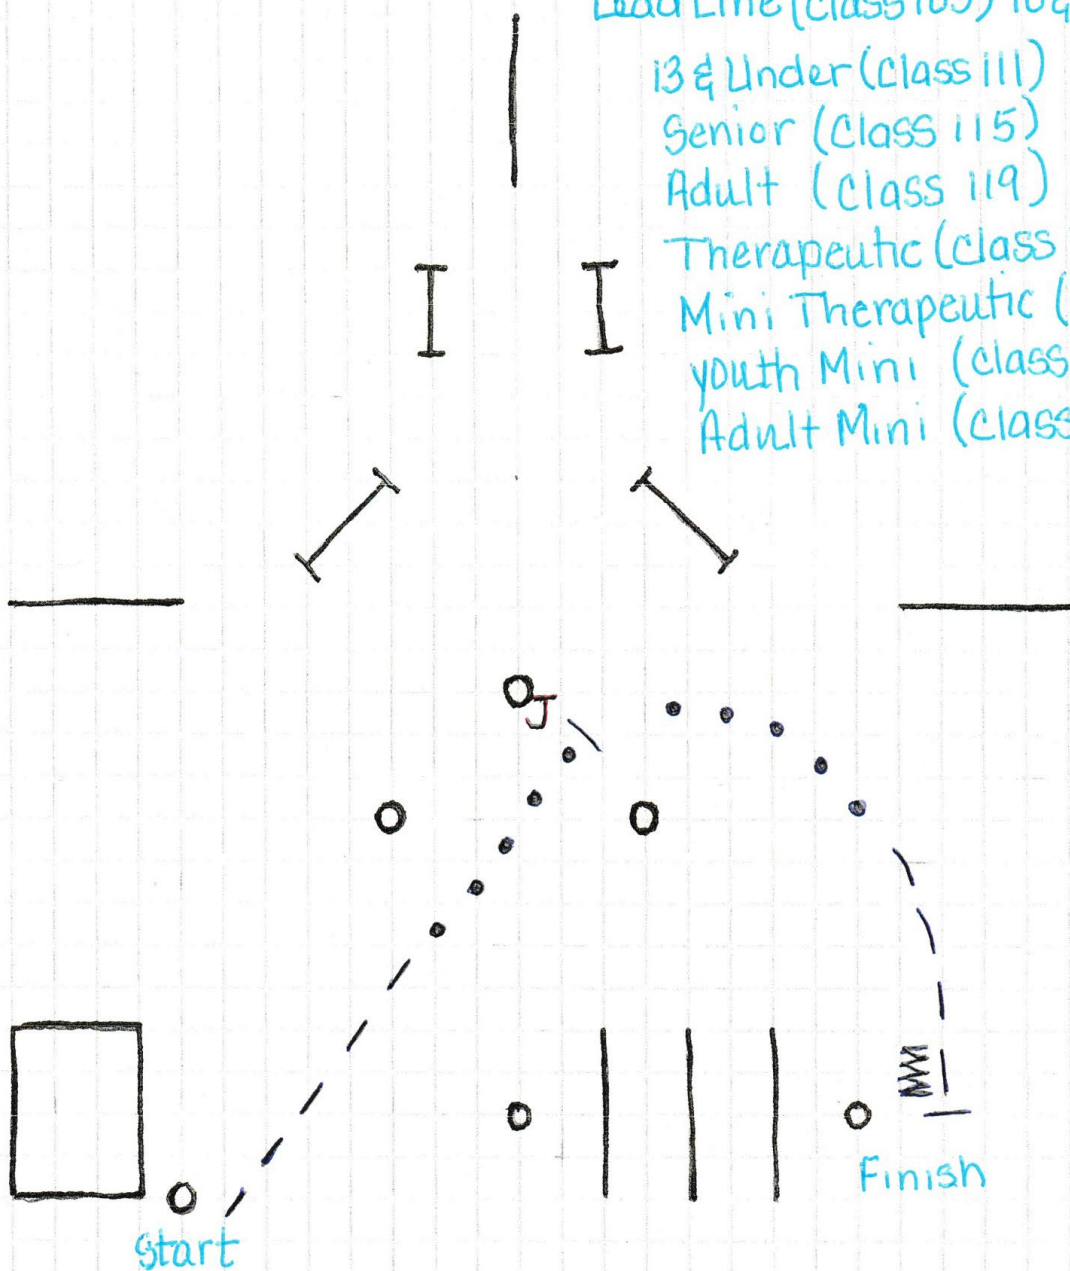 Lead Line (class 105) 10 &
13 & Under (Class 111)
Senior (Class 115)
Adult (Class 119)
Therapeutic (class
Mini Therapeutic (
youth Mini (class
Adult Mini (class
J
Finish
Start